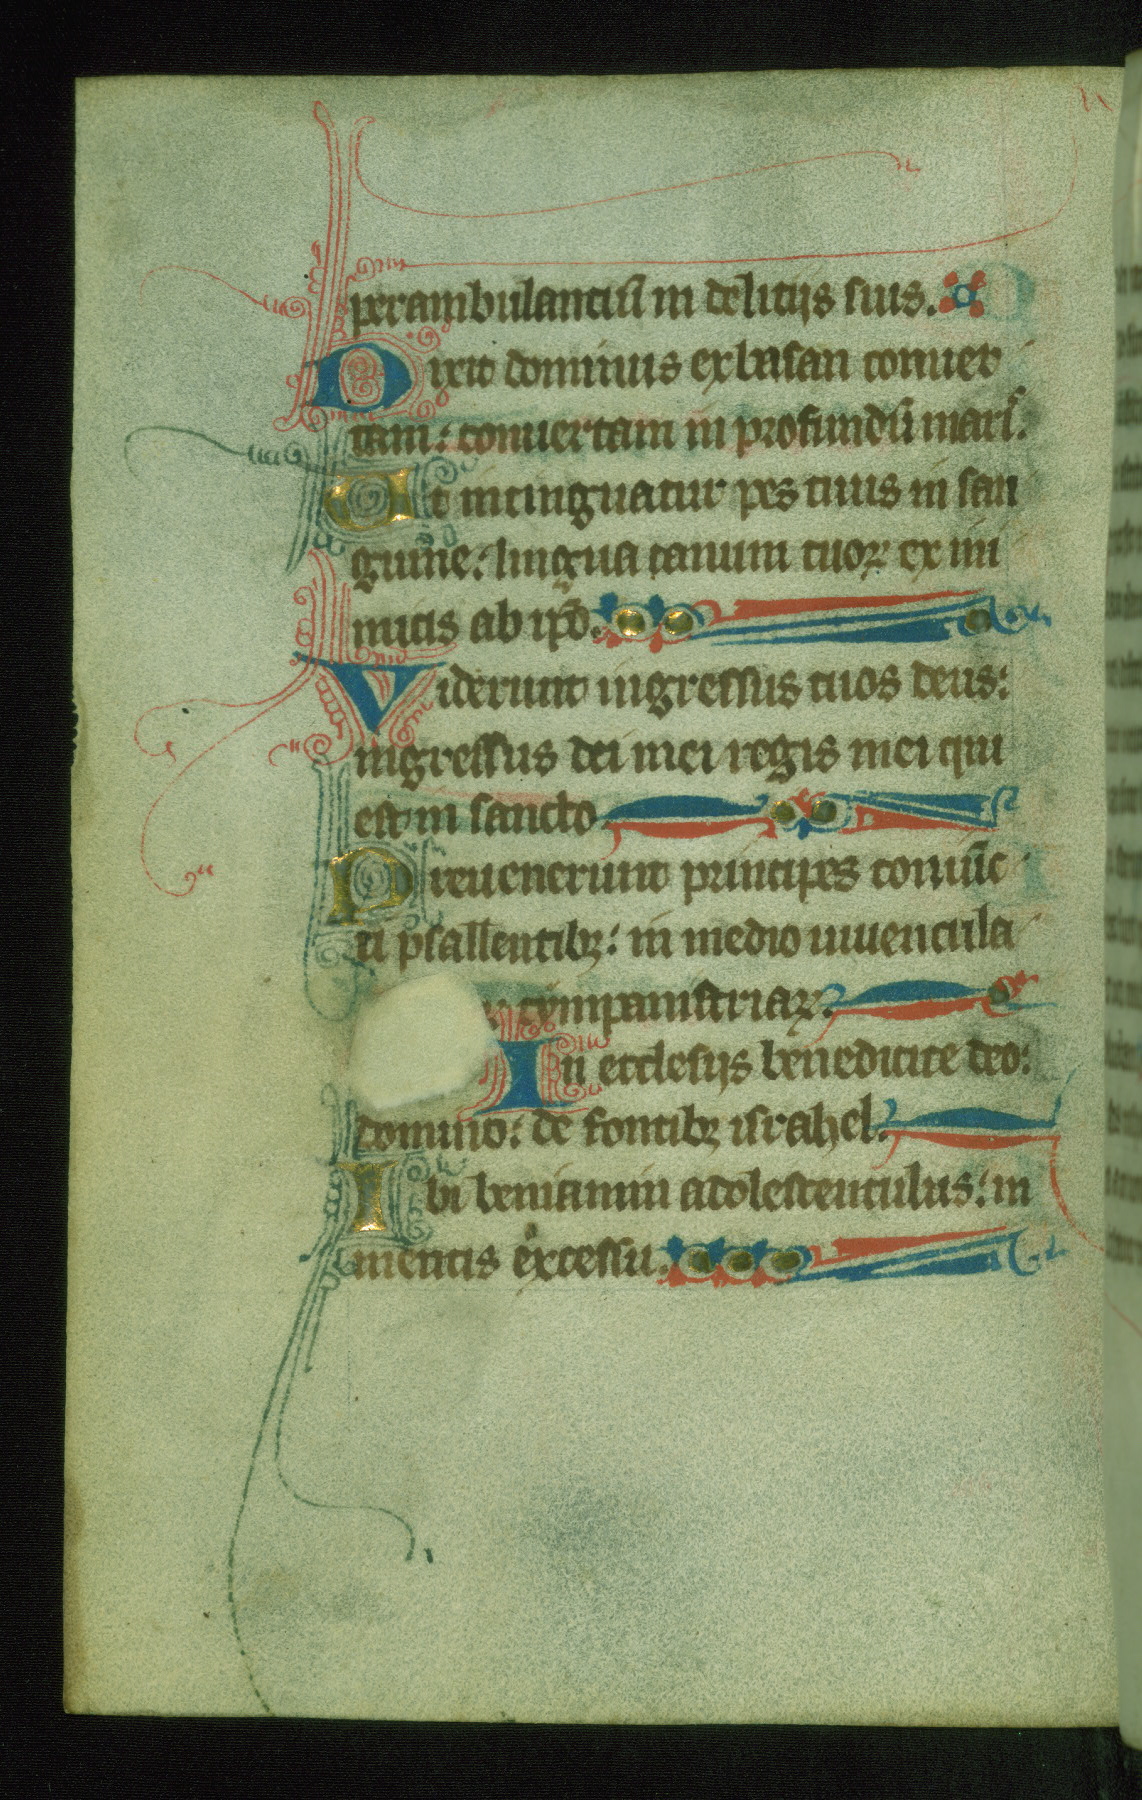 perambulanciū in delitijs suis.
Dixit dominus ex basan conuer
tam: conuertam in profundū maris.
Ut intinguatur pes tuus in san
guine: lingua canum tuoꝝ ex ini
micis ab ip̄o.
Viderunt ingressus tuos deus:
ingressus dei mei regis mei qui
est in sancto.
Preuenerunt principes coniūc
ti psallentibꝫ: in medio iuuencula
ꝝ tympanistriaꝝ.
In ecclesijs benedicite deo:
domino: de fontibꝫ israhel.
Ibi beniamin adolescentulus: in
mentis excessu.